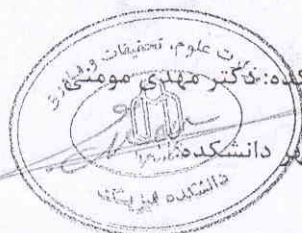 وزارت علوم، تحقیقات و فناوری
ده: دکتر مهدی مومنی
هر دانشکده:
دانشکده فیزیک